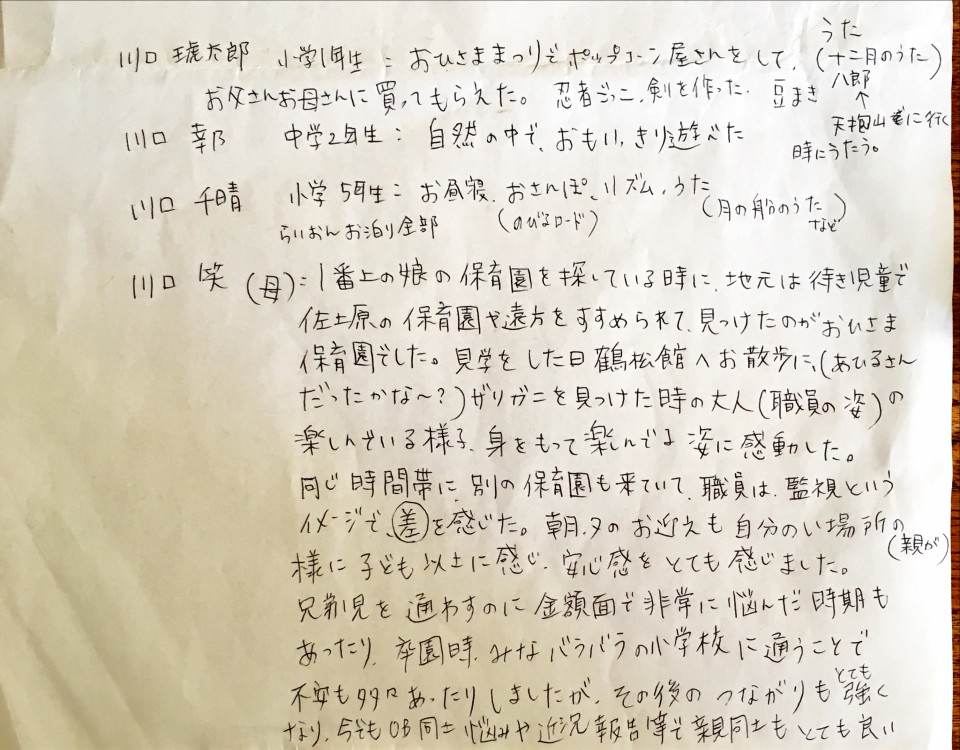 川口 琥太郎 小学1年生：おひさままつりでポップコーン屋さんをして、うた(十二月のうた)
お父さんお母さんに買ってもらえた。忍者ごっこ、剣を作った、豆まき
八郎
↑
天抱山
に行く
時にうたう。
川口 幸乃 中学2年生：自然の中で、おもいっきり遊べた
川口 千晴 小学5年生：お昼寝、おさんぽ、リズム、うた
(のびるロード) (月の船のうた
など)
らいおんお泊り全部
川口 笑 (母)：1番上の娘の保育園を探している時に、地元は待き児童で
佐土原の保育園や遠方をすすめられて、見つけたのがおひさま
保育園でした。見学をした日鶴松館へお散歩に、(あひるさん
だったかな〜?)ザリガニを見つけた時の大人(職員の姿)の
楽しんでいる様子、身をもって楽しんでる姿に感動した。
同じ時間帯に、別の保育園も来ていて、職員は、監視という
イメージで、差を感じた。朝、夕のお迎えも自分のい場所の
(親が)
様に子ども以上に感じ、安心感をとても感じました。
兄弟児を通わすのに金額面で非常に悩んだ時期も
あったり、卒園時、みなバラバラの小学校に通うことで
不安も多々あったりしましたが、その後のつながりもとても強く
なり、今でもOB同士悩みや近況報告等で親同士もとても良い